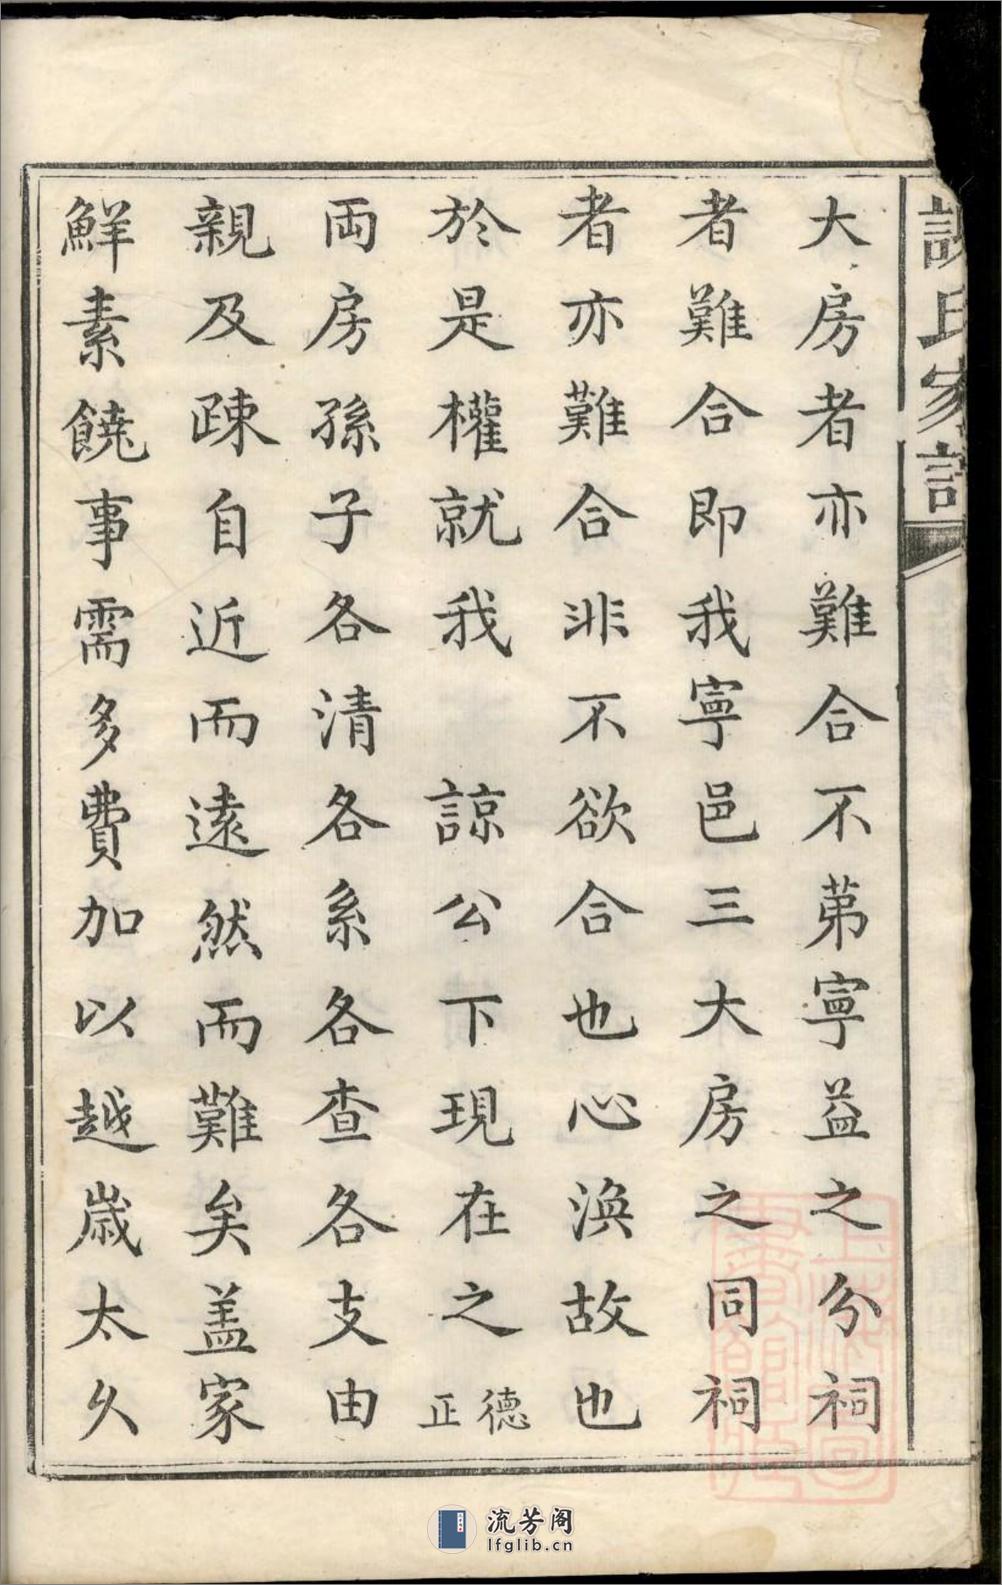 氏家
大房者亦難合不苐寧益之分祠
者難合即我寧邑三大房之同祠
者亦難合非不欲合也心渙故也
於是權就我　諒公下現在之德正
両房孫子各清各系各查各支由
親及疎自近而遠然而難矣盖家
鮮素饒事需多費加以越歳太久
流芳阁
lfglib.cn